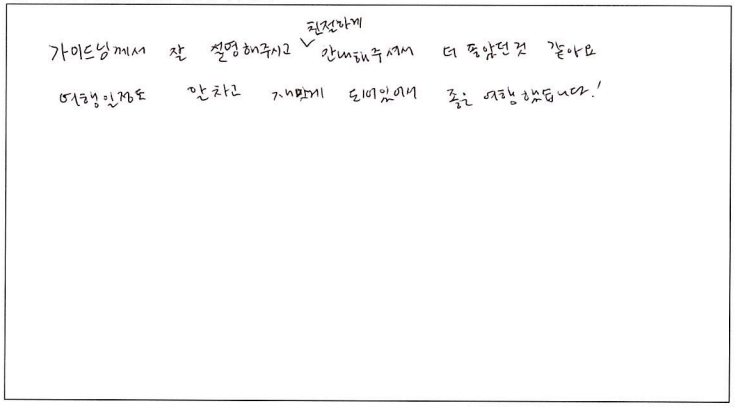 가이드님께서 잘 설명해주시고 친절하게 안내해주셔서 더 좋았던것 같아요
여행일정도 알차고 재밌게 되어있어서 좋은 여행했습니다!